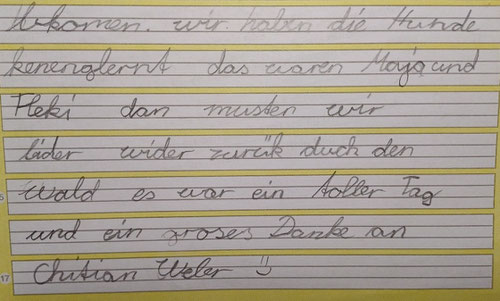 wir haben die Hunde
kenenglernt das waren Maja und
Fleki dan musten wir
lider wider zurük duch den
wald es war ein toller Tag
5
und ein groses Danke an
17
Chitian Weler